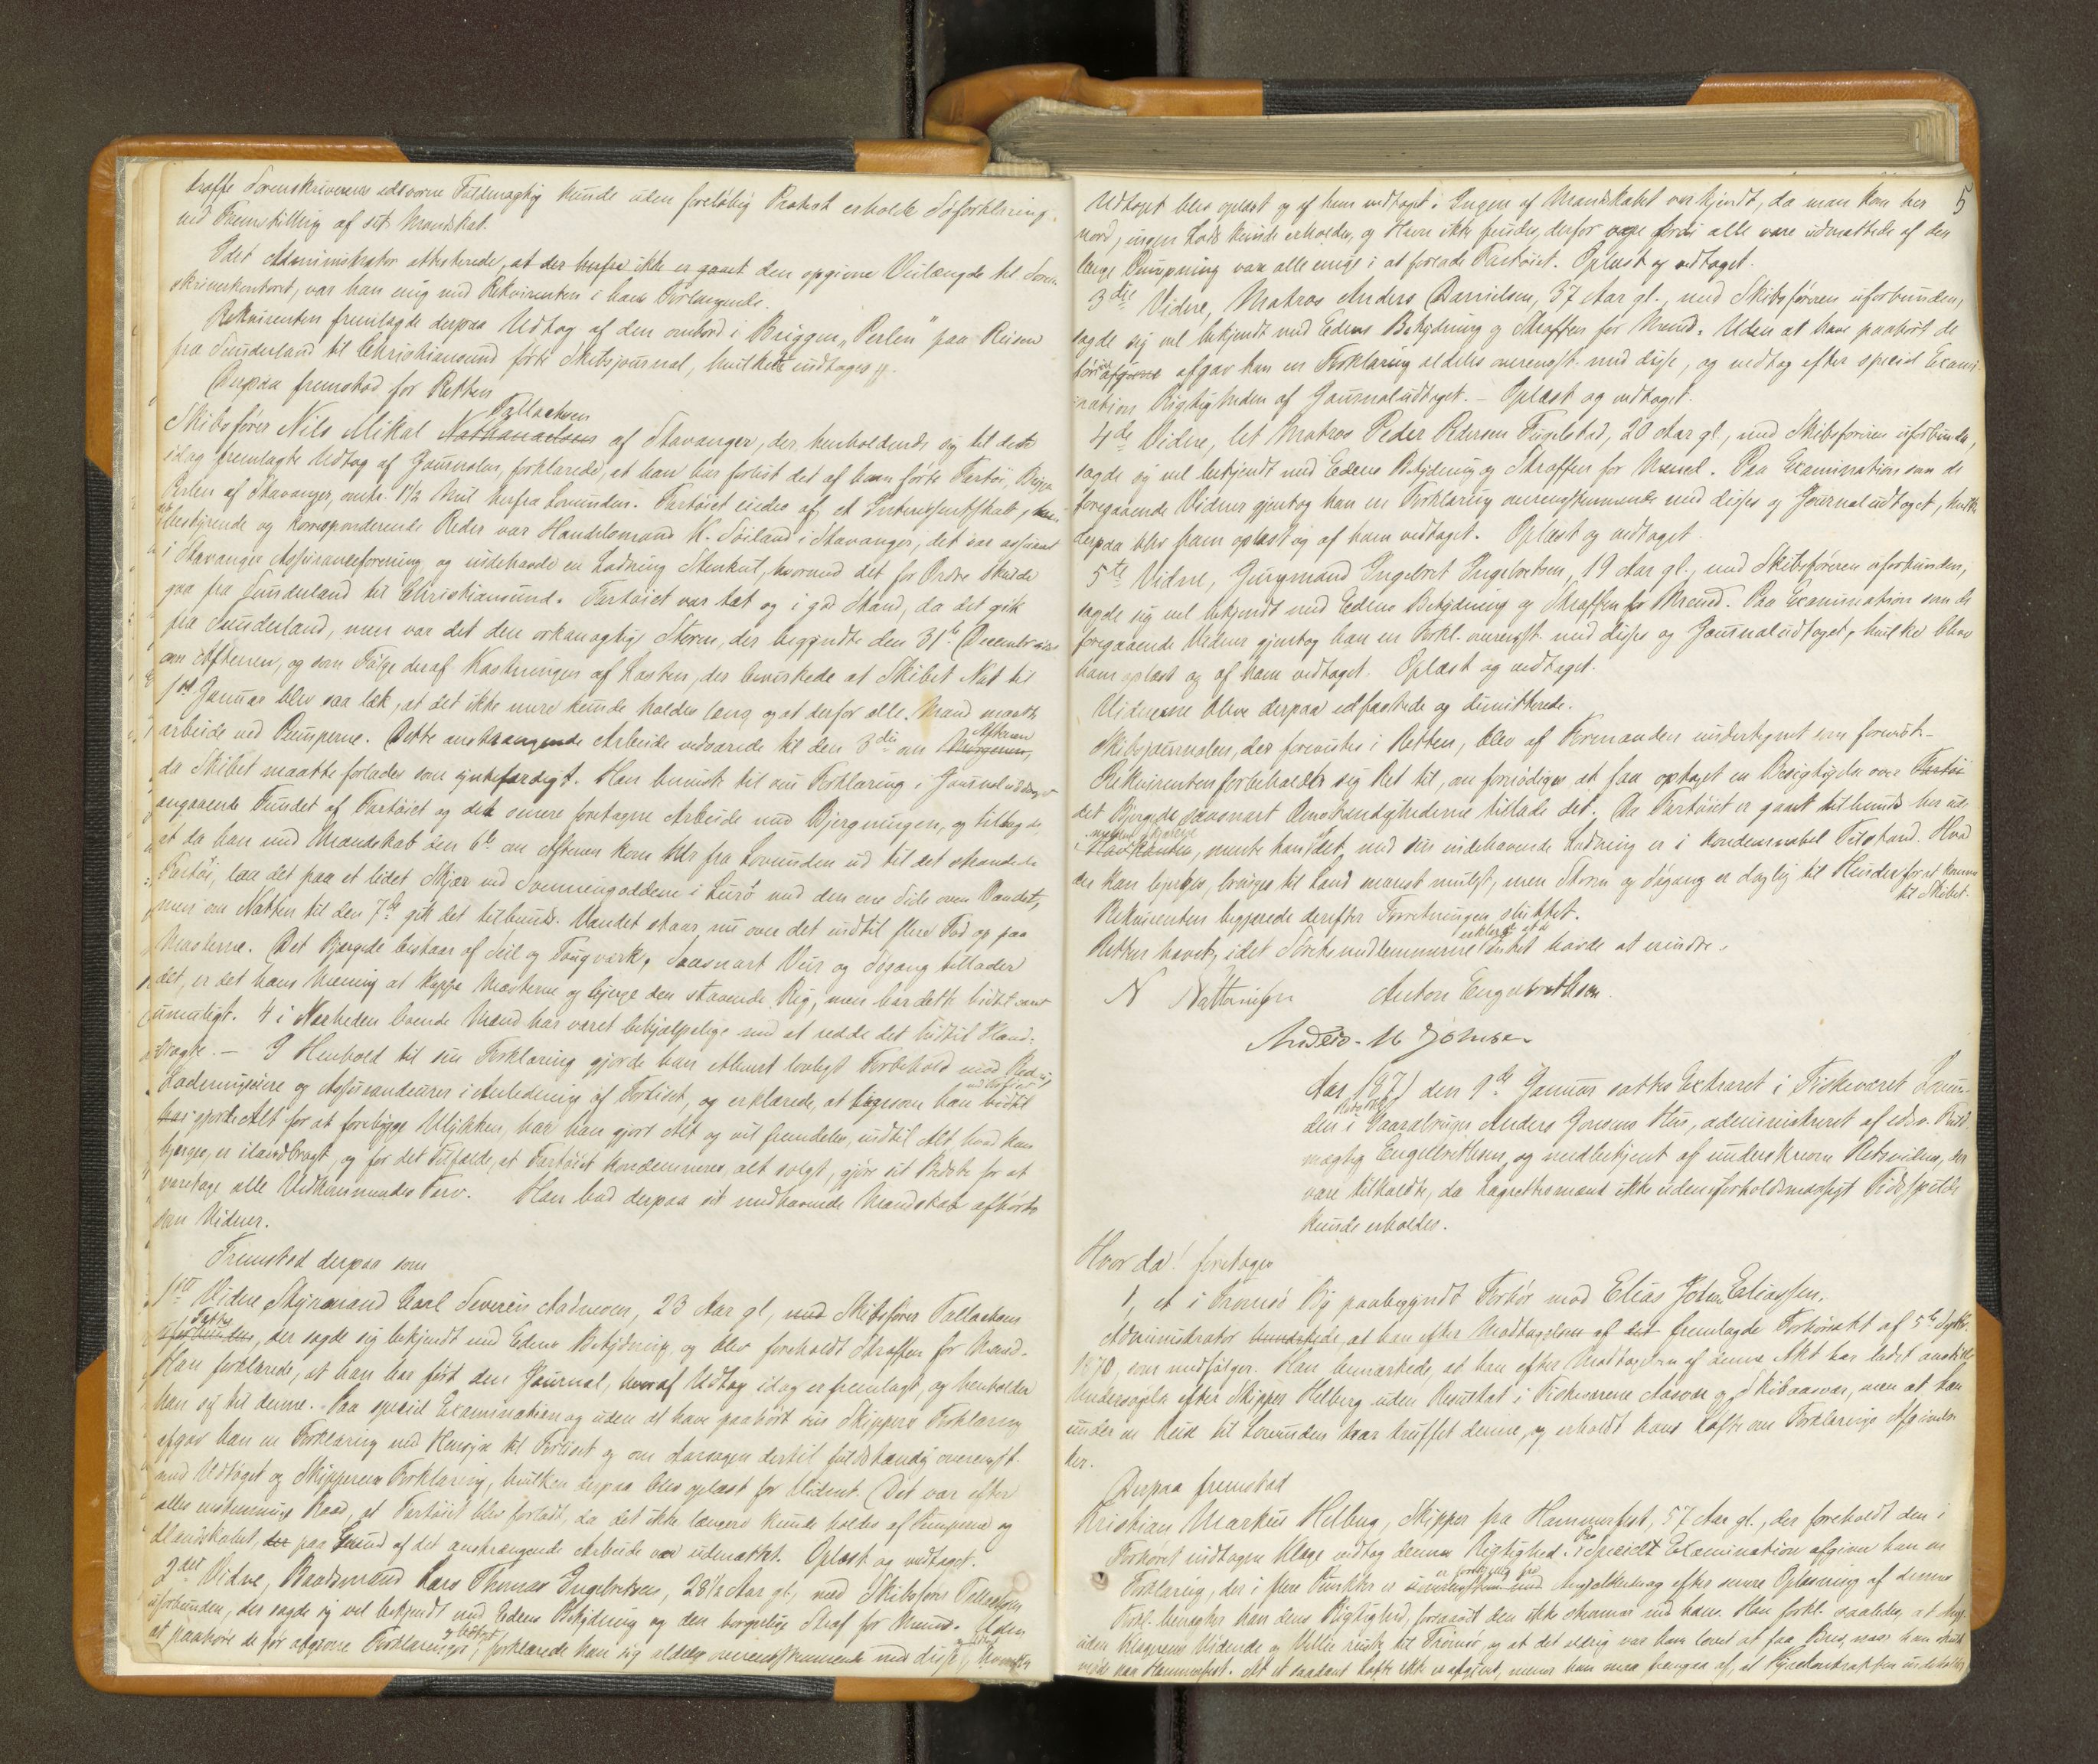 træffe Sorenskriverens edsvorne Fuldmægtig kunde uden foreløbig Protest erholde Søforklaring,
ved Fremstilling af sit Mandskab.
Idet Administrator attesterede, at der herfra ikke er gaaet den opgivne Veilængde til Soren-
skriverkontoret, var han enig med Rekvirenten i hans Forlangende.
Rekvirenten fremlagde derpaa Udtog af den ombord i Briggen „Perlen" paa Reisen
fra Sunderland til Christiansund førte Skibsjournal, hvilket indtages
Derpaa fremstod for Retten
Tallachsen
Skibsfører Nils Mikal Nathanaelsen af Stavanger, der, henholdende sig til det
idag fremlagte Udtog af Journalen, forklarede, at han har forlist det af ham førte Fartøi, Brig
Perlen af Stavanger, omtr. 1½ Miil herfra Lovunden. Fartøiet eiedes af et Interessentskab,
bestyrende og korresponderende Reder var Handelsmand K. Søiland i Stavanger, det var assureret
i Stavanger Assuranceforening og indehavde en Ladning Stenkul, hvormed det for Ordre skulde
gaa fra Sunderland til Christiansund. Fartøiet var tæt og i god Stand, da det gik
fra Sunderland, men var det den orkanagtige Storm, der begyndte den 31te December
om Aftenen, og som Følge deraf Kastningen af Lasten, der bevirkede at Skibet Nat til
1ste Januar blev saa læk, at det ikke mere kunde holdes læns, og at derfor alle Mand maatte
arbeide ved Pumperne. Dette anstrængende Arbeide vedvarede til den 3die om Morgenen, Aftenen
da Skibet maatte forlades som synkefærdigt. Han henviste til sin Forklaring i Journaludtoget
angaaende Fundet af Fartøiet og det senere foretagne Arbeide med Bjergningen, og tillagde,
at da han med Mandskab den 6te om Aftenen kom her fra Lovunden ud til det strandede
Fartøi, laa det paa et lidet Skjær ved Svenningoddene i Lurø med den ene Side over Vandet,
men om Natten til den 7de gik det tilbunds. Vandet staar nu over det indtil flere Fod op paa
Masterne. Det Bjergede bestaar af Seil og Tougværk. Saasnart Veir og Søgang tillader
det, er det hans Mening at kappe Masterne og bjerge den staaende Rig, men har dette hidtil været
umuligt. 4 i Nærheden boende Mænd har været behjælpelige med at redde det hidtil iland-
bragte. — I Henhold til sin Forklaring gjorde han ethvert lovligt Forbehold mod Rederi,
Ladningseiere og Assurandeurer i Anledning af Forliset, og erklærede, at ligesom han hidtil
har gjorde Alt for at forebygge Ulykken, har han gjort Alt og vil fremdeles, indtil Alt hvad kan
bjerges, er ilandbragt, og for det Tilfælde, at Fartøiet kondemneres, alt solgt, gjøre sit Bedste for at
varetage alle Vedkommendes Tarv. Han bad derpaa sit medhavende Mandskab afhørte
som Vidner.
Fremstod derpaa som
1ste Vidne Styrmand Carl Severin Aadnesen, 23 Aar gl, med Skibsfører Tallachsen
uforbunden, der sagde sig bekjendt med Edens Betydning og blev foreholdt Straffen for Mened.
Han forklarede, at han har ført den Journal, hvoraf Udtog idag er fremlagt, og henholder
han sig til denne. Paa speciel Examination og uden at have paahørt sin Skippers Forklaring
afgav han en Forklaring med Hensyn til Forliset og om Aarsagen dertil fuldstændig overenst.
med Udtoget og Skipperens Forklaring, hvilken derpaa blev oplæst for Vidnet. Det var efter
alles enstemmige Raad, at Fartøiet blev forladt, da det ikke længere kunde holdes af Pumperne og
Mandskabet, der paa Grund af det anstrængende Arbeide var udmattet. Oplæst og vedtaget.
2det Vidne, Baadsmand Lars Thomas Engelbretsen, 28½ Aar gl, med Skibsfører Tallachsen
uforbunden, der sagde sig vel bekjendt med Edens Betydning og den borgerlige Straf for Mened. Uden
at paahøre de før afgivne Forklaringer, forklarede han sig aldeles overensstemmende med disse,
5
Udtoget blev oplæst og af ham vedtaget. Ingen af Mandskabet var kjendt, da man kom her
nord, ingen Lods kunde erholdes, og Havn ikke findes, derfor og fordi alle vare udmattede af den
lange Pumpning vare alle enige i at forlade Fartøiet. Oplæst og vedtaget.
3die Vidne, Matros Anders Danielsen, 37 Aar gl., med Skibsføreren uforbunden,
sagde sig vel bekjendt med Edens Betydning og Straffen for Mened. Uden at have paahørt de
før afgivne afgav han en Forklaring aldeles overenst. med disse, og vedtog efter speciel Exami-
nation Rigtigheden af Journaludtoget. — Oplæst og vedtaget.
4de Vidne, let Matros Peder Pedersen Fugelstad, 20 Aar gl, med Skibsføreren uforbunden,
sagde sig vel bekjendt med Edens Betydning og Straffen for Mened. Paa Examination som de
foregaaende Vidner gjentog han en Forklaring overensstemmende med disses og Journaludtoget, hvilke
derpaa blev ham oplæst og af ham vedtaget. Oplæst og vedtaget.
5te Vidne, Jungmand Ingebret Ingebretsen, 19 Aar gl., med Skibsføreren uforbunden,
sagde sig vel bekjendt med Edens Betydning og Straffen for Mened. Paa Examination som de
foregaaende Vidner gjentog han en Forkl. overenst. med disses og Journaludtoget, hvilke blev
ham oplæst og af ham vedtaget. Oplæst og vedtaget.
Vidnerne bleve derpaa edfæstede og dimitterede.
Skibsjournalen, der forevistes i Retten, blev af Formanden undertegnet som forevist.
Rekvirenten forbeholdt sig Ret til, om fornødiges at faa optaget en Besigtigelse over Fartøi
det Bjergede saasnart Omstændighederne tillade det. Da Fartøiet er gaaet tilbunds her ude
i Havkanten, mente han at det med sin indehavende Ladning er i kondemnabel Tilstand. Hvad
der kan bjerges, bringes til Land snarest muligt, men Storm og Søgang er daglig til Hinder for at komme
til Skibet.
Rekvirenten begjærede derefter Forretningen sluttet.
erklærede at de
Retten hævet, idet Retsmedlemmerne Intet havde at erindre.
N Anton Engelbrethsen
Anders M Jonsen
Aar 1871 den 9de Januar sattes Extraret i Fiskeværet Lovun-
den i Gaardbruger Anders Jonsens Hus, administreret af edsv. Fuld-
mægtig Engelbrethsen og medbetjent af underskrevne Retsvidner, der
vare tilkaldte, da Lagrettesmænd ikke uden uforholdsmæssigt Tidsspilde
kunde erholdes.
Hvor da! foretoges
1, et i Tromsø By paabegyndt Forhør mod Elias Johan Eliassen.
Administrator bemærkede, at han efter Modtagelsen af det fremlagde Forhørsakt af 5te Septbr.
1870, som medfølger. Han bemærkede, at han efter Modtagelsen af denne Akt har ladet anstille
Undersøgelse efter Skipper Helberg uden Resultat i Fiskeværene Aasvær og Skibaasvær, men at han
under en Reise til Lovunden har truffet denne, og erholdt hans Løfte om Forklarings Afgivelse
her.
Derpaa fremstod
Kristian Markus Helberg, Skipper fra Hammerfest, 57 Aar gl., der foreholdt den i
Forhøret indtagne Klage vedtog dennes Rigtighed. Paa specielt Examination afgiver han en
Forklaring, der i flere Punkter er overensstem med Angjældendes og efter senere Oplæsning af dennes
Forkl. benægter han dens Rigtighed, forsaavidt den ikke stemmer med hans. Han forkl. saaledes, at Ang.
uden Klagerens Vidende og Villie reiste til Tromsø, og at det aldrig var ham lovet at faa